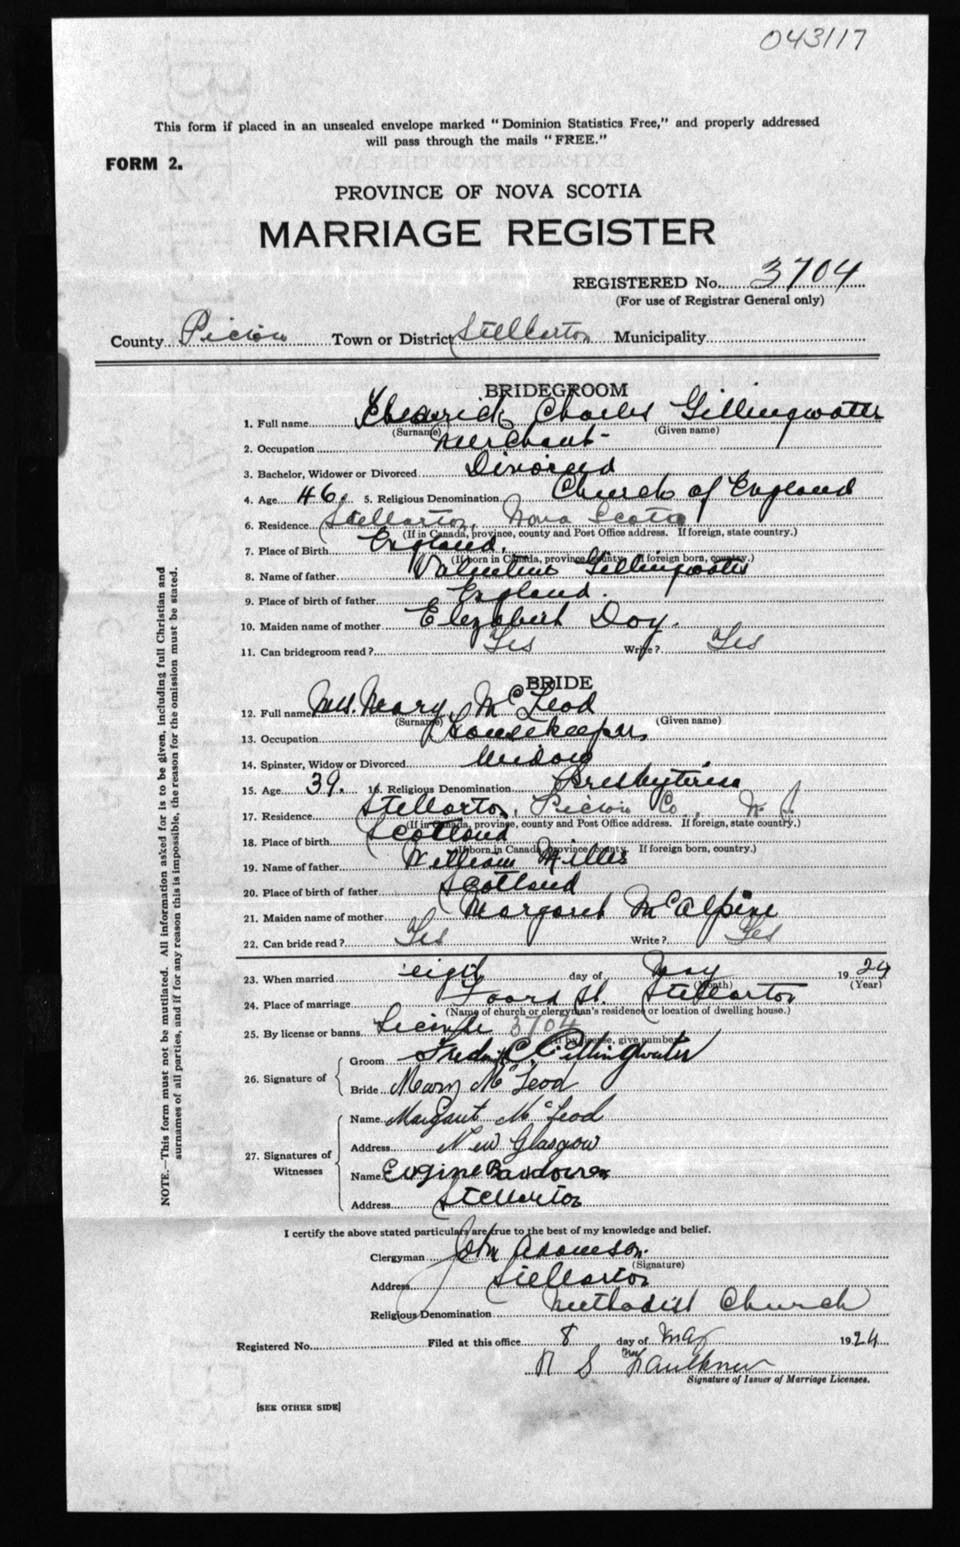 043117
This form if placed in an unsealed envelope marked "Dominion Statistics Free," and properly addressed
will pass through the mails "FREE."
FORM 2.
PROVINCE OF NOVA SCOTIA
MARRIAGE REGISTER
REGISTERED No. 3704
(For use of Registrar General only)
County Pictou Town or District Stellarton Municipality
BRIDEGROOM
1. Full name Frederick Charles Gillingwater
(Surname) (Given name)
2. Occupation Merchant
3. Bachelor, Widower or Divorced Divorced
4. Age 46. 5. Religious Denomination Church of England
6. Residence Stellarton, Nova Scotia
(If in Canada, province, county and Post Office address. If foreign, state country.)
7. Place of Birth England.
(If born in Canada, province county. If foreign born, country.)
8. Name of father Valentine Gillingwater
9. Place of birth of father England.
10. Maiden name of mother Elezabeth Doy.
11. Can bridegroom read? Yes Write? Yes
BRIDE
12. Full name Mrs. Mary McLeod
(Surname) (Given name)
13. Occupation Housekeeper,
14. Spinster, Widow or Divorced Widow
15. Age 39. 16. Religious Denomination Presbyterian
17. Residence Stellarton, Pictou Co., N. S.
(If in Canada, province, county and Post Office address. If foreign, state country.)
18. Place of birth Scotland
(If born in Canada province county. If foreign born, country.)
19. Name of father William Miller
20. Place of birth of father Scotland
21. Maiden name of mother Margaret McAlpine
22. Can bride read? Yes Write? Yes
23. When married eight day of May 1924
(Month) (Year)
24. Place of marriage Foord St. Stellarton
(Name of church or clergyman's residence or location of dwelling house.)
25. By license or banns License 3704
(If by license, give number)
26. Signature of Groom Fredrick C. Gillingwater
Bride Mary McLeod
27. Signatures of Witnesses Name Margaret McLeod
Address New Glasgow
Name Eugine
Address Stellarton
I certify the above stated particulars are true to the best of my knowledge and belief.
Clergyman John Adamson.
(Signature)
Address Stellarton
Religious Denomination Methodist Church
Registered No. Filed at this office 8 day of May 1924
Faulkner
Signature of Issuer of Marriage Licenses.
[SEE OTHER SIDE]
NOTE.—This form must not be mutilated. All information asked for is to be given, including full Christian and
surnames of all parties, and if for any reason this is impossible, the reason for the omission must be stated.